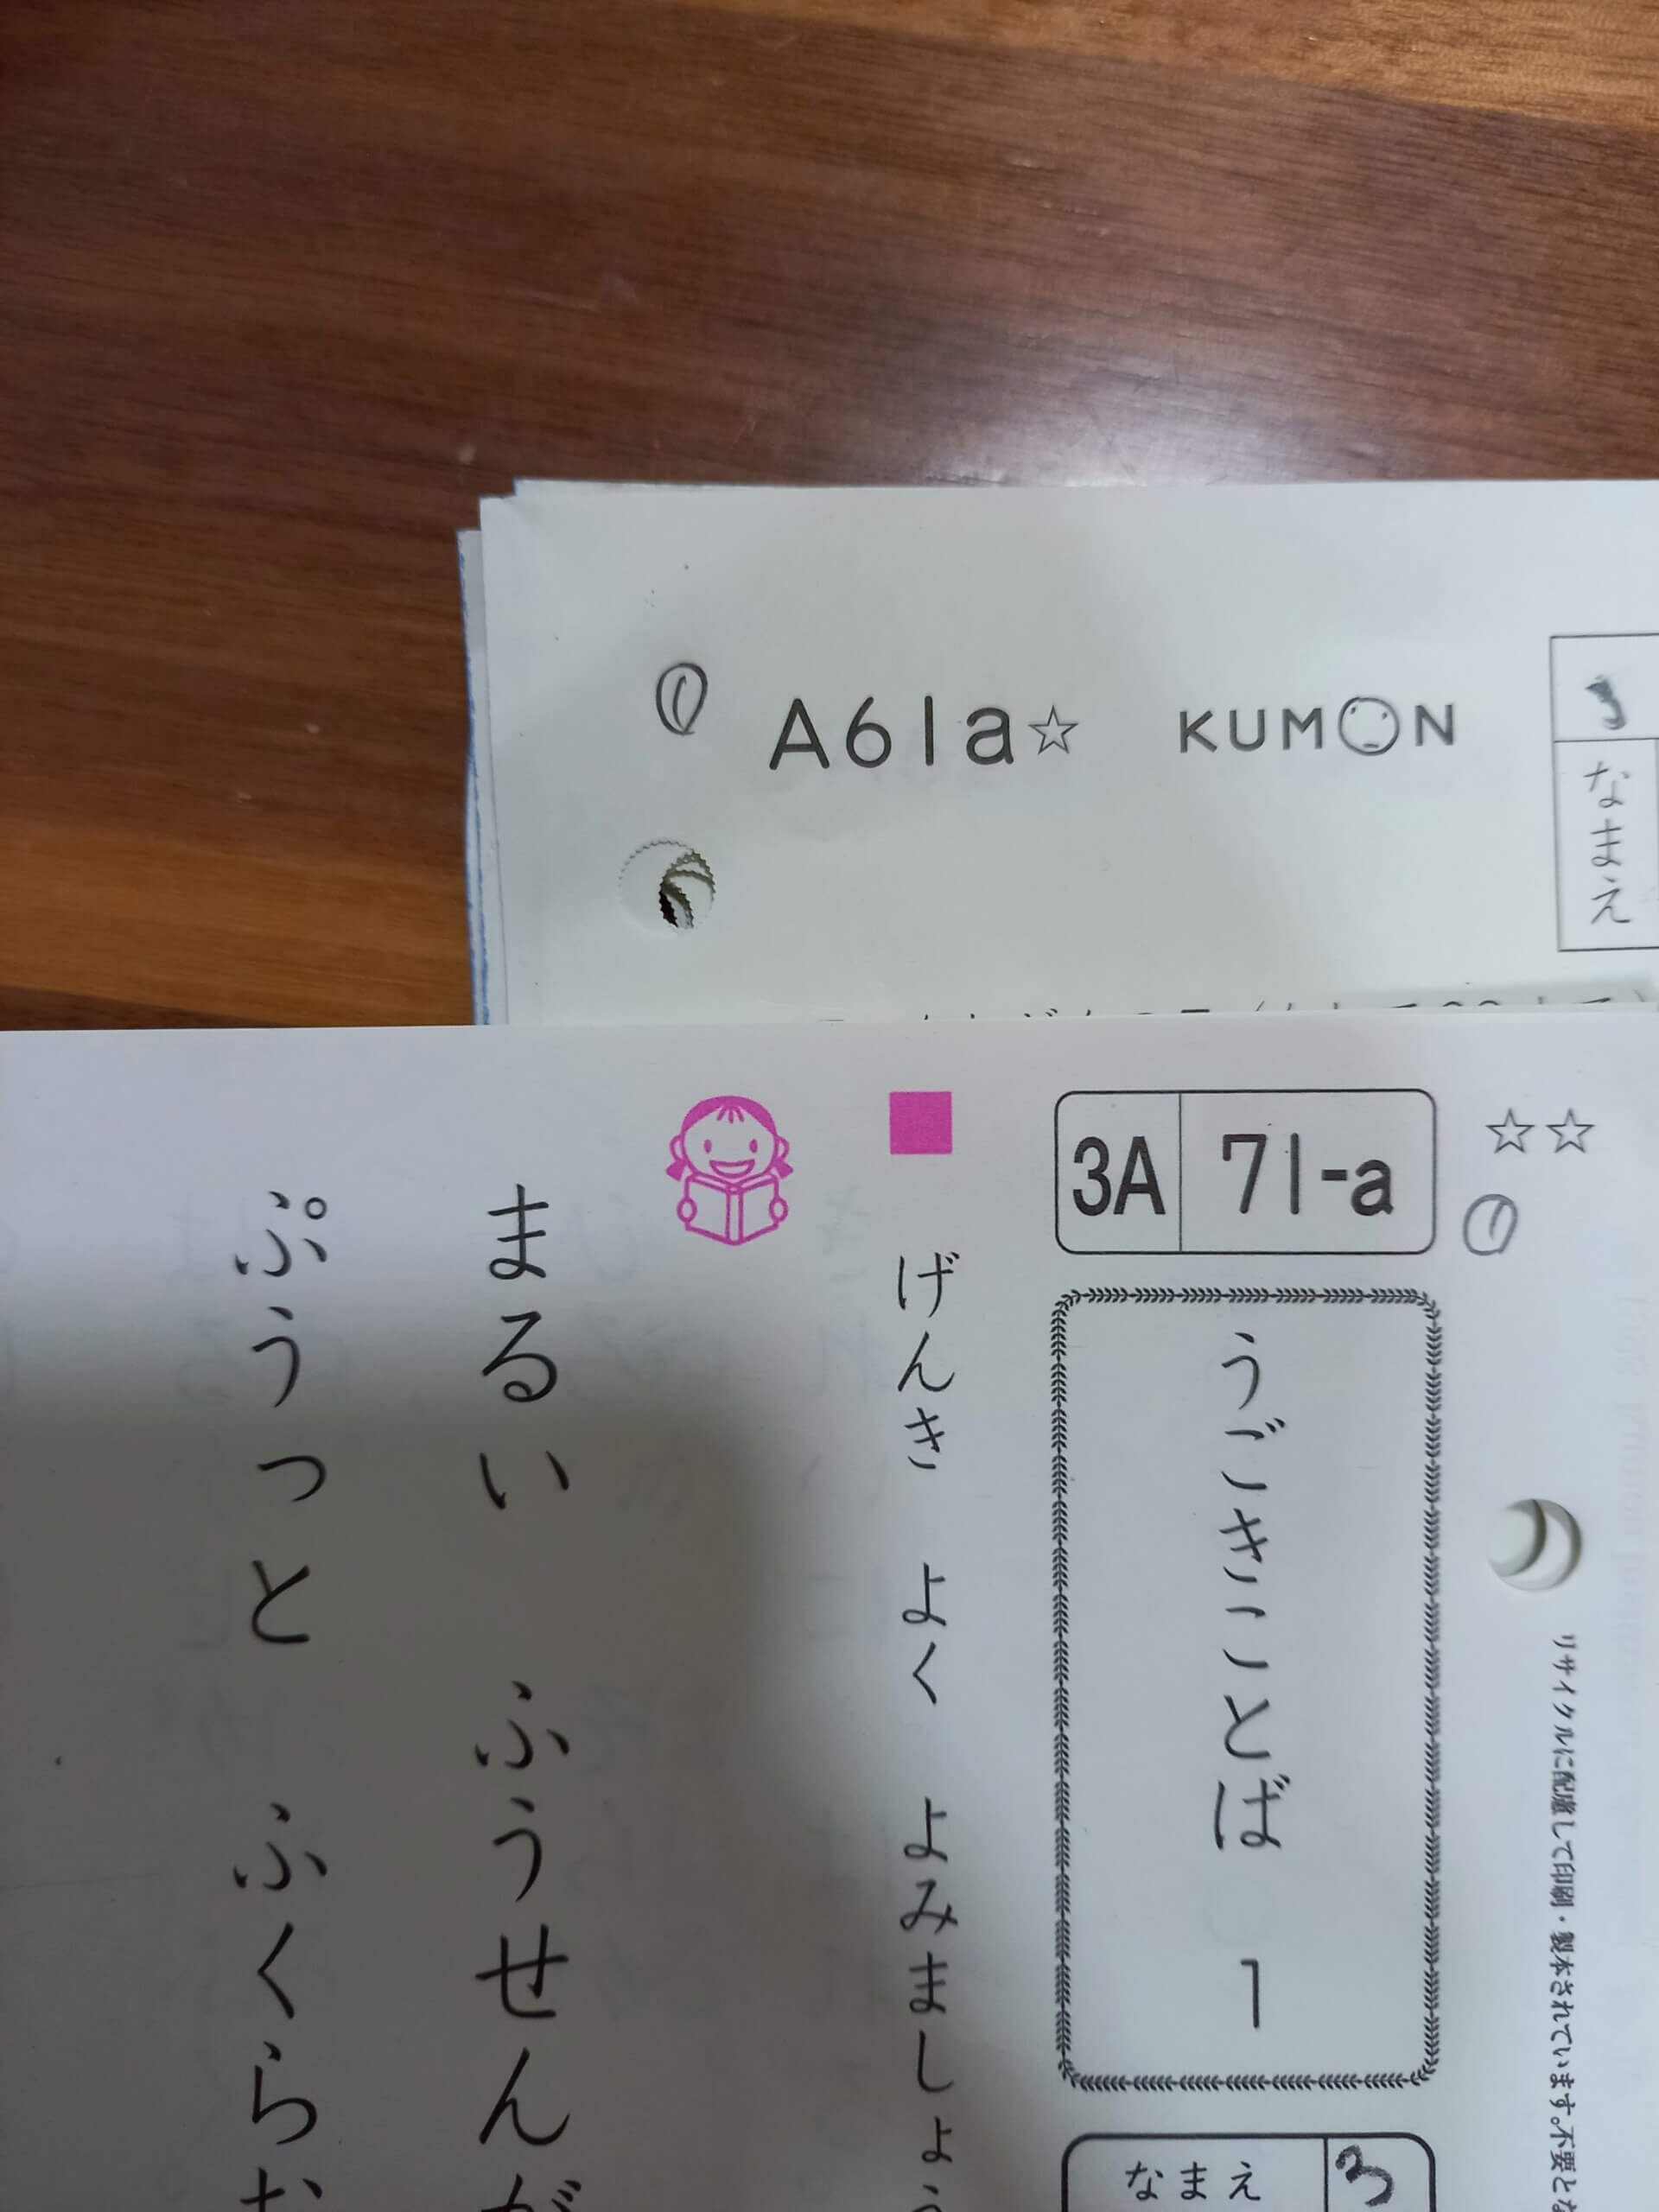 ①
A61a☆ KUMON
なまえ
☆☆
①
3A 71-a
うごきことば 1
なまえ 3
リサイクルに配慮して印刷・製本されています。不要とな
■ げんき よく よみましょう
まるい ふうせんが
ぷうっと ふくらむ